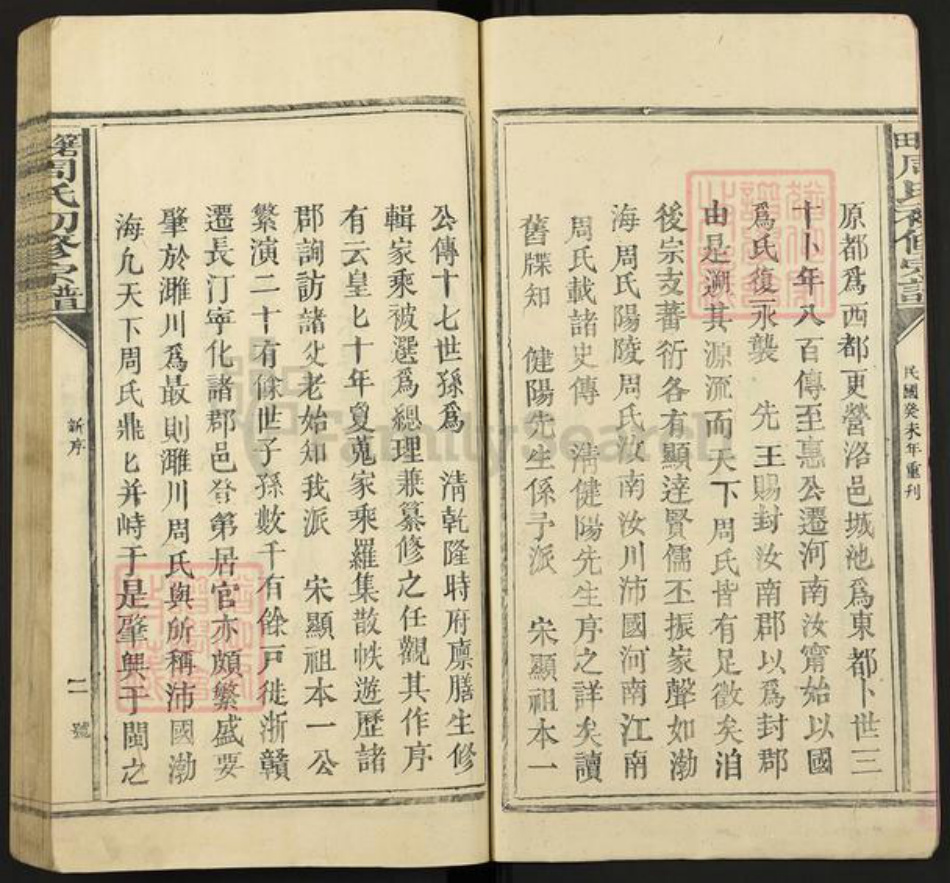 民國癸未年重刊
原都爲西都更營洛邑城池爲東都卜世三
十卜年八百傳至惠公遷河南汝甯始以國
爲氏復永襲 先王賜封汝南郡以爲封郡
由是溯其源流而天下周氏皆有足徵矣洎
後宗支蕃衍各有顯達賢儒丕振家聲如渤
海周氏陽陵周氏汝南汝川沛國河南江南
周氏載諸史傳 清健陽先生序之詳矣讀
舊牒知 健陽先生係予派 宋顯祖本一
公傳十七世孫爲 清乾隆時府廪膳生修
輯家乘被選爲總理兼纂修之任觀其作序
有云皇七十年夏蒐家乘羅集散帙遊歷諸
郡詢訪諸父老始知我派 宋顯祖本一公
繁演二十有餘世子孫數千有餘戸徙浙贛
遷長汀寧化諸郡邑登第居官亦頗繁盛要
肇於濉川爲最則濉川周氏與所稱沛國渤
海九天下周氏鼎七并峙于是肇興于閩之
周氏初修宗譜
新序
二號
FamilySearch